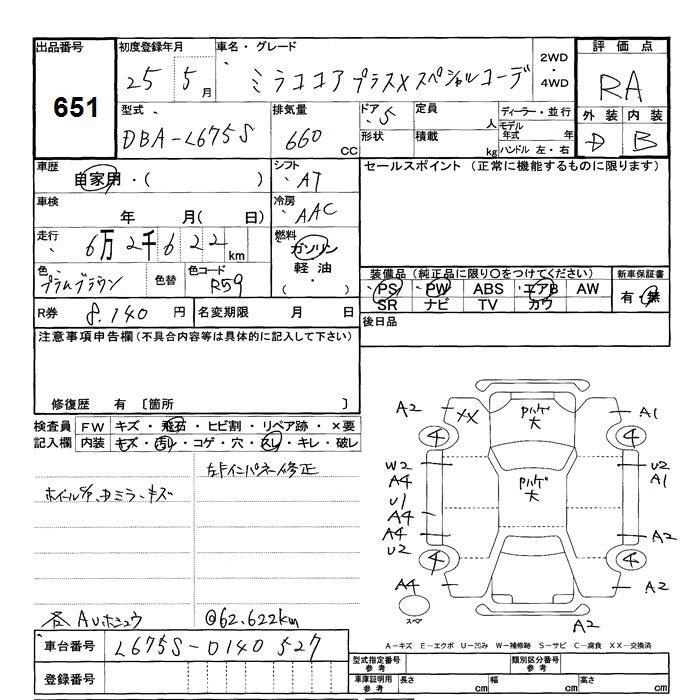 出品番号 初度登録年月 車名・グレード 2WD・4WD 評価点
651 25 5月 ミラココア プラスX スペシャルコーデ RA
型式 排気量 ドア 定員 ディーラー・並行 外装 内装
DBA-L675S 660 CC 5 人 モデル年式 年 D B
形状 積載 kg ハンドル 左・右
車歴 シフト セールスポイント (正常に機能するものに限ります)
自家用・( ) AT
車検 冷房
年 月( 日) AAC
走行 燃料
6万2千622km ガソリン
軽油
・( )
色 色替 色コード 装備品 (純正品に限り○をつけてください) 新車保証書
プラムブラウン R59 PS PW ABS エアB AW 有・無
SR ナビ TV カワ
R券 8,140円 名変期限 月 日 後日品
注意事項申告欄(不具合内容等は具体的に記入して下さい)
修復歴 有 〔箇所 〕
検査員 FW キズ・飛石・ヒビ割・リペア跡・×要
記入欄 内装 キズ・汚レ・コゲ・穴・スレ・キレ・破レ
左ドインパネー修正
各AUホシュウ @62.622km
車台番号 L675S-0140527
登録番号
A2 XX パハゲ大 A1
4 4
W2 パハゲ大 U2
A4 A1
U1
A4
A4 A2
U2
4 4
A4 A2
スペア A2
A-キズ E-エクボ U-凹み W-補修跡 S-サビ C-腐食 XX-交換済
型式指定番号 参考 類別区分番号 参考
車庫証明用 参考 長さ cm 幅 cm 高さ cm